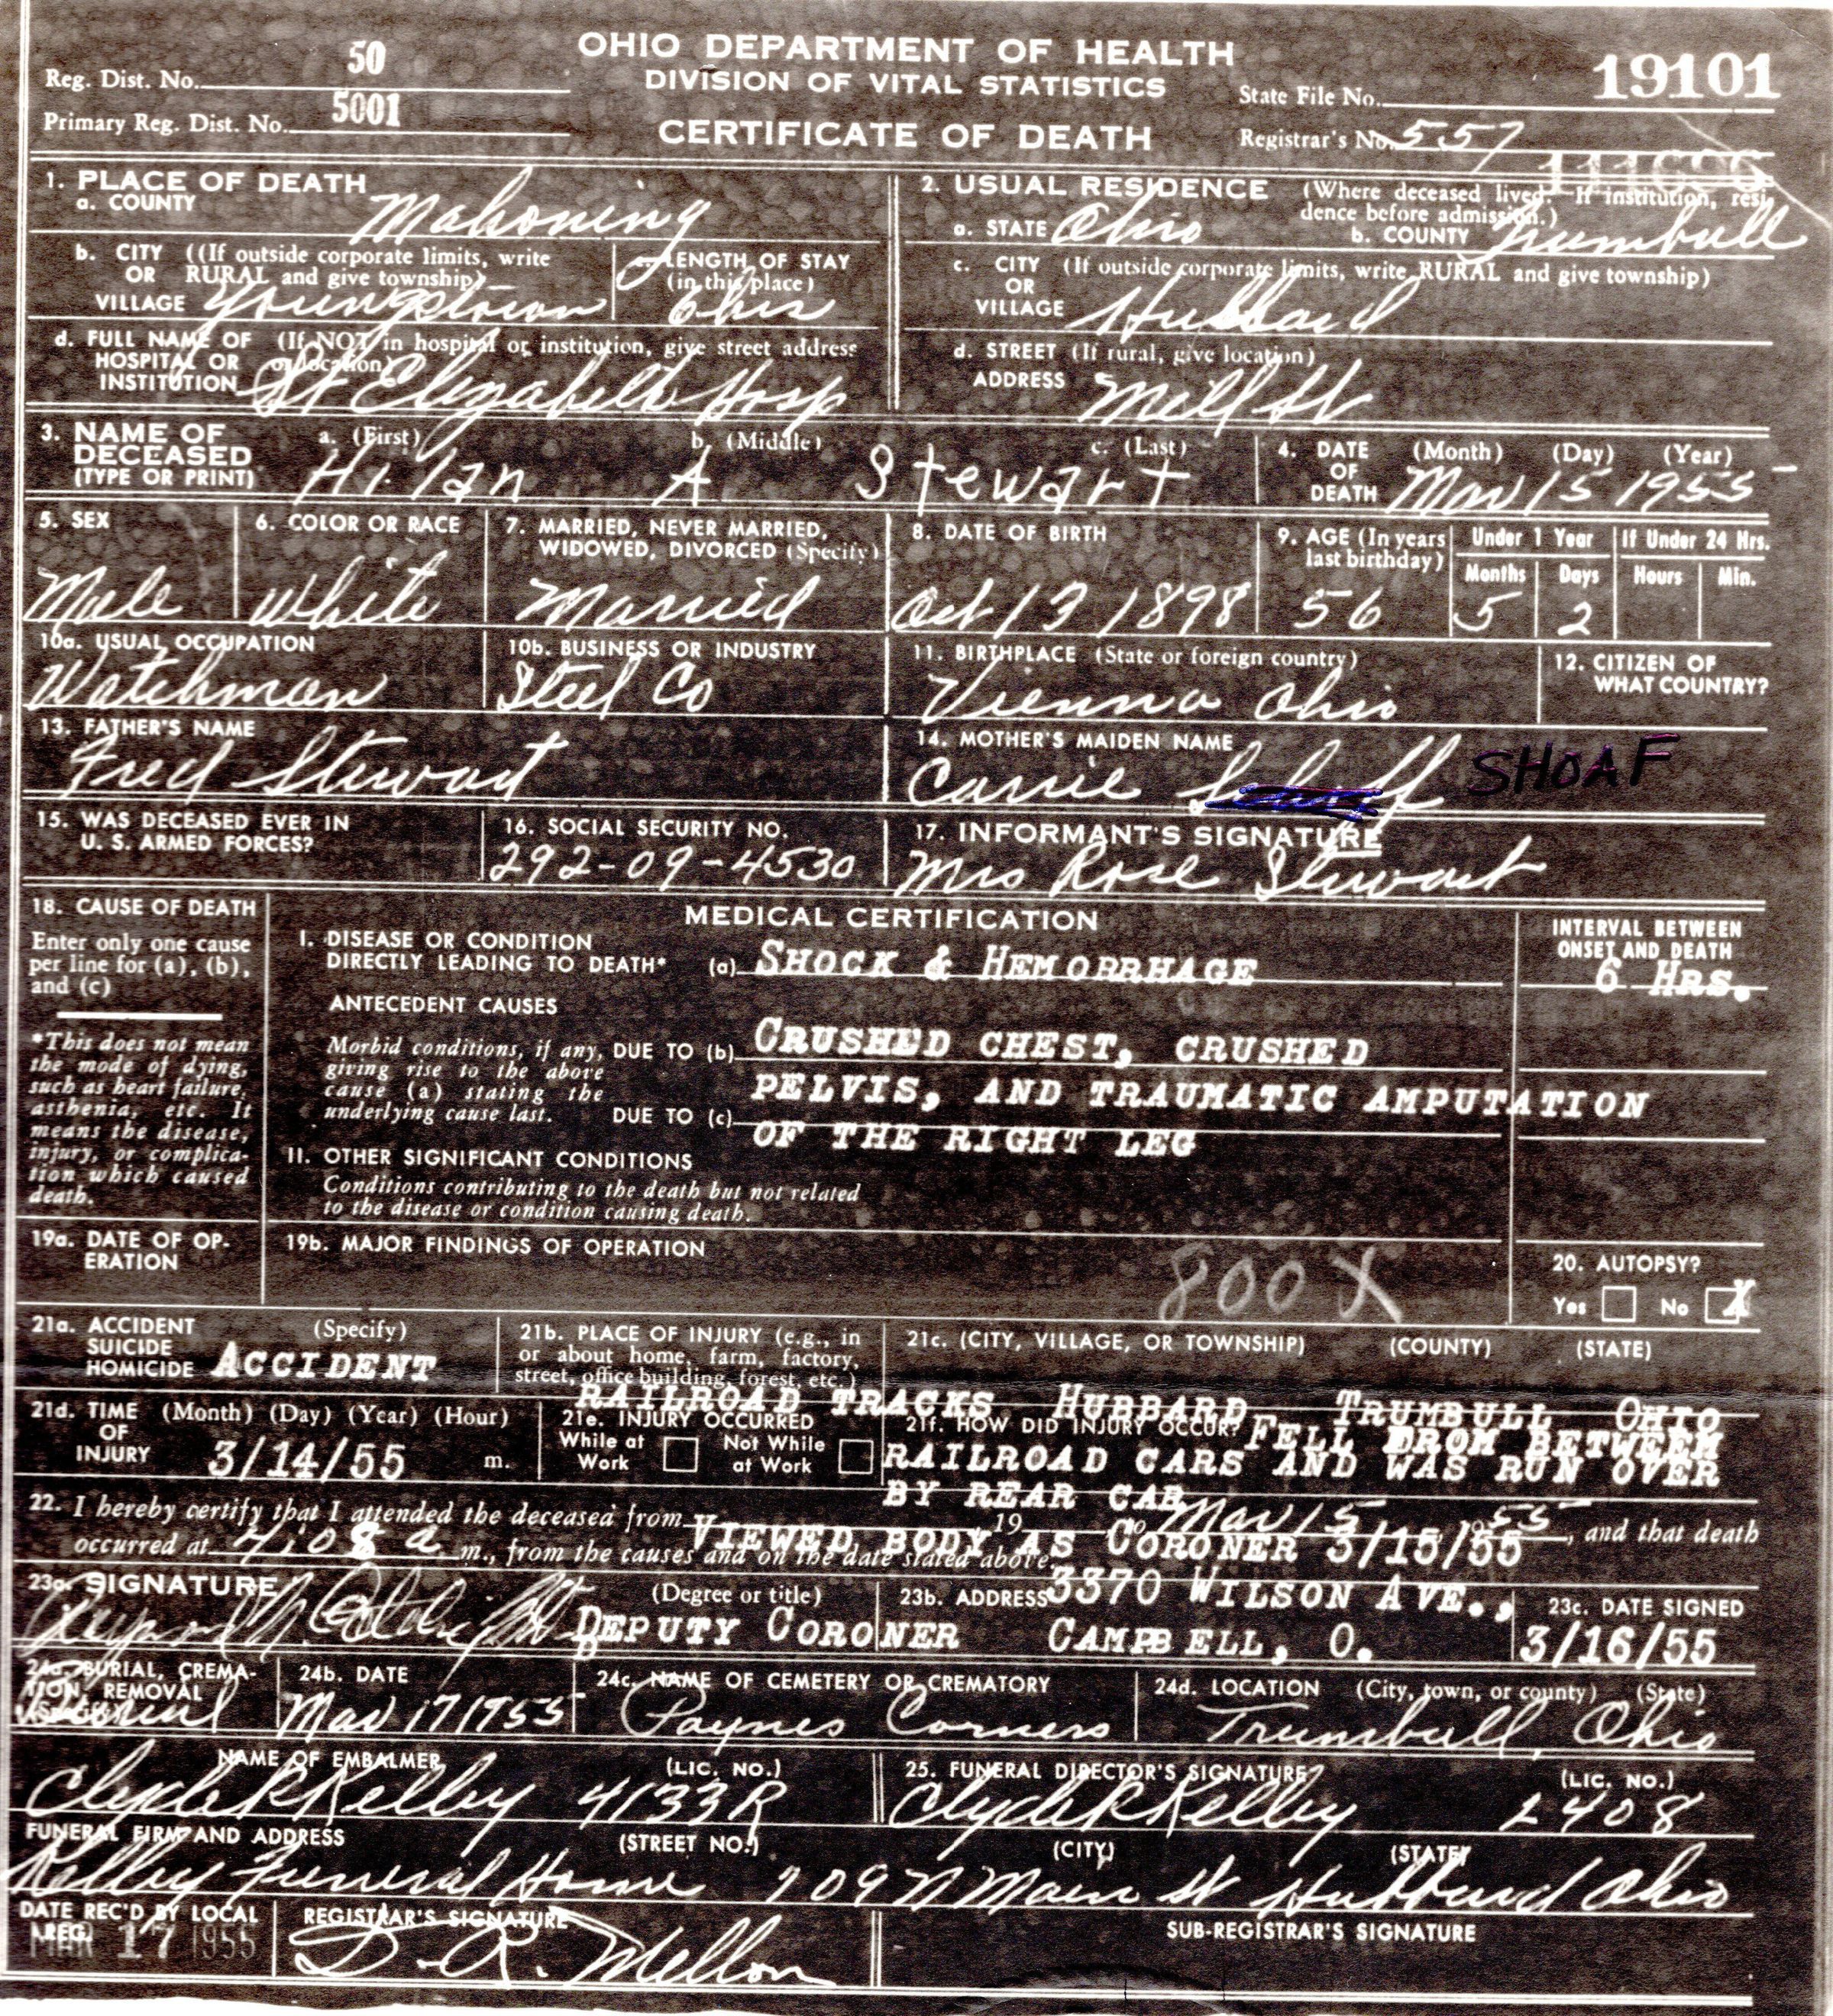 OHIO DEPARTMENT OF HEALTH
DIVISION OF VITAL STATISTICS
CERTIFICATE OF DEATH
Reg. Dist. No. 50
Primary Reg. Dist. No. 5001
State File No. 19101
Registrar's No. 557
1. PLACE OF DEATH
a. COUNTY Mahoning
b. CITY ((If outside corporate limits, write
OR RURAL and give township)
VILLAGE Youngstown
LENGTH OF STAY
(in this place)
6 hrs
d. FULL NAME OF (If NOT in hospital or institution, give street address
HOSPITAL OR or location)
INSTITUTION St Elizabeth Hosp
2. USUAL RESIDENCE (Where deceased lived. If institution, resi
dence before admission.)
a. STATE Ohio b. COUNTY Trumbull
c. CITY (If outside corporate limits, write RURAL and give township)
OR
VILLAGE Hubbard
d. STREET (If rural, give location)
ADDRESS Mill St
3. NAME OF
DECEASED
(TYPE OR PRINT)
a. (First) b. (Middle) c. (Last)
A Stewart
4. DATE (Month) (Day) (Year)
OF
DEATH Mar 15 1955
5. SEX
Male
6. COLOR OR RACE
White
7. MARRIED, NEVER MARRIED,
WIDOWED, DIVORCED (Specify)
Married
8. DATE OF BIRTH
Oct 13 1898
9. AGE (In years
last birthday)
56
Under 1 Year
Months Days
5 2
If Under 24 Hrs.
Hours Min.
10a. USUAL OCCUPATION
Watchman
10b. BUSINESS OR INDUSTRY
Steel Co
11. BIRTHPLACE (State or foreign country)
Vienna Ohio
12. CITIZEN OF
WHAT COUNTRY?
13. FATHER'S NAME
Fred Stewart
14. MOTHER'S MAIDEN NAME
Carrie SHOAF
15. WAS DECEASED EVER IN
U. S. ARMED FORCES?
16. SOCIAL SECURITY NO.
292-09-4530
17. INFORMANT'S SIGNATURE
Mrs Rose Stewart
18. CAUSE OF DEATH
Enter only one cause
per line for (a), (b),
and (c)
*This does not mean
the mode of dying,
such as heart failure,
asthenia, etc. It
means the disease,
injury, or complica-
tion which caused
death.
MEDICAL CERTIFICATION
I. DISEASE OR CONDITION
DIRECTLY LEADING TO DEATH* (a) SHOCK & HEMORRHAGE
INTERVAL BETWEEN
ONSET AND DEATH
6 HRS.
ANTECEDENT CAUSES
Morbid conditions, if any, DUE TO (b) CRUSHED CHEST, CRUSHED
giving rise to the above
cause (a) stating the PELVIS, AND TRAUMATIC AMPUTATION
underlying cause last. DUE TO (c)
OF THE RIGHT LEG
II. OTHER SIGNIFICANT CONDITIONS
Conditions contributing to the death but not related
to the disease or condition causing death.
19a. DATE OF OP-
ERATION
19b. MAJOR FINDINGS OF OPERATION
800 X
20. AUTOPSY?
Yes No X
21a. ACCIDENT (Specify)
SUICIDE
HOMICIDE ACCIDENT
21b. PLACE OF INJURY (e.g., in
or about home, farm, factory,
street, office building, forest, etc.)
RAILROAD TRACKS
21c. (CITY, VILLAGE, OR TOWNSHIP) (COUNTY) (STATE)
HUBBARD TRUMBULL OHIO
21d. TIME (Month) (Day) (Year) (Hour)
OF
INJURY 3/14/55 m.
21e. INJURY OCCURRED
While at Not While
Work at Work
21f. HOW DID INJURY OCCUR? FELL DROM BETWEEM
RAILROAD CARS AND WAS RUN OVER
BY REAR CAR
22. I hereby certify that I attended the deceased from 19 to Mar 15 1955, and that death
VIEWED BODY AS CORONER 3/15/55
occurred at 4:08 a m., from the causes and on the date stated above.
23a. SIGNATURE (Degree or title)
DEPUTY CORONER
23b. ADDRESS 3370 WILSON AVE.,
CAMPBELL, O.
23c. DATE SIGNED
3/16/55
24a. BURIAL, CREMA-
TION, REMOVAL
Burial
24b. DATE
Mar 17 1955
24c. NAME OF CEMETERY OR CREMATORY
Paynes Corners
24d. LOCATION (City, town, or county) (State)
Trumbull, Ohio
NAME OF EMBALMER (LIC. NO.)
Clyde R Kelley 4133R
25. FUNERAL DIRECTOR'S SIGNATURE (LIC. NO.)
Clyde R Kelley 2408
FUNERAL FIRM AND ADDRESS (STREET NO.) (CITY) (STATE)
Kelley Funeral Home 709 N Main St Hubbard Ohio
DATE REC'D BY LOCAL
REG.
MAR 17 1955
REGISTRAR'S SIGNATURE
D. R. Mellon
SUB-REGISTRAR'S SIGNATURE